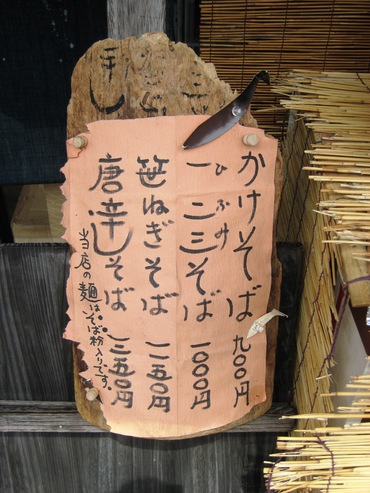 かけそば 九〇〇円
一二三そば 一〇〇〇円
ひふみ
笹ねぎそば 一一五〇円
唐辛しそば 一三五〇円
当店の麺は、そば粉入りです。